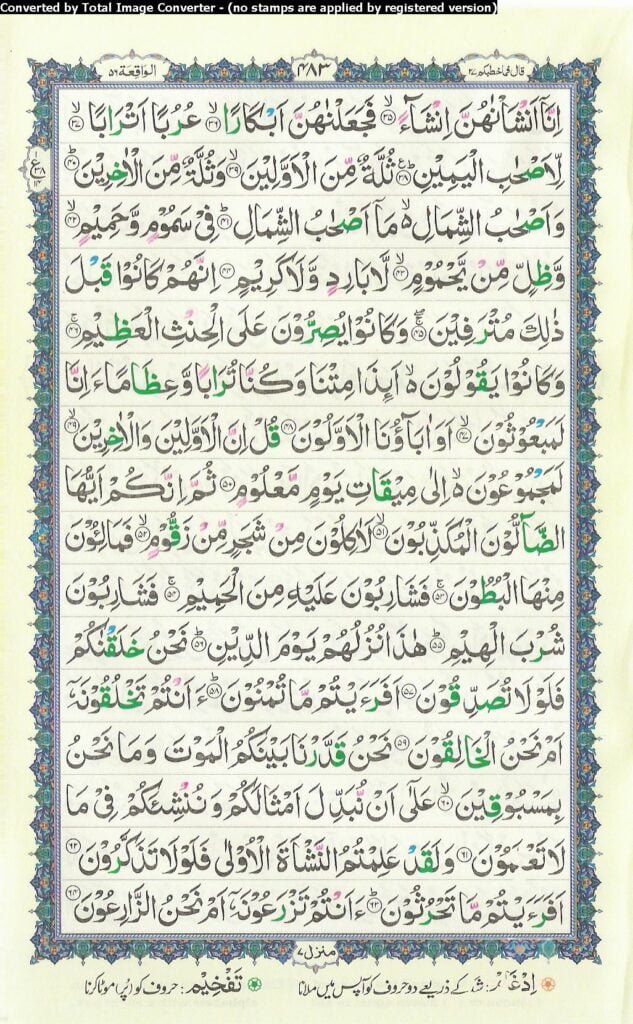 Converted by Total Image Converter - (no stamps are applied by registered version)
قال فما خطبكم ٢٧
٤٨٣
الواقعة ٥٦
اِنَّاۤ اَنْشَاْنٰهُنَّ اِنْشَآءًۙ۝۳۵ فَجَعَلْنٰهُنَّ اَبْكَارًاۙ۝۳۶ عُرُبًا اَتْرَابًاۙ۝۳۷
لِّاَصْحٰبِ الْيَمِيْنِؕ۝۳۸ ثُلَّةٌ مِّنَ الْاَوَّلِيْنَۙ۝۳۹ وَثُلَّةٌ مِّنَ الْاٰخِرِيْنَؕ۝۴۰
وَاَصْحٰبُ الشِّمَالِ ۙ مَاۤ اَصْحٰبُ الشِّمَالِؕ۝۴۱ فِيْ سَمُوْمٍ وَّحَمِيْمٍۙ۝۴۲
وَّظِلٍّ مِّنْ يَّحْمُوْمٍۙ۝۴۳ لَّا بَارِدٍ وَّلَا كَرِيْمٍ۝۴۴ اِنَّهُمْ كَانُوْا قَبْلَ
ذٰلِكَ مُتْرَفِيْنَۚۖ۝۴۵ وَكَانُوْا يُصِرُّوْنَ عَلَى الْحِنْثِ الْعَظِيْمِۚ۝۴۶
وَكَانُوْا يَقُوْلُوْنَ ۙ اَىِٕذَا مِتْنَا وَكُنَّا تُرَابًا وَّعِظَامًا ءَاِنَّا
لَمَبْعُوْثُوْنَۙ۝۴۷ اَوَاٰبَآؤُنَا الْاَوَّلُوْنَ۝۴۸ قُلْ اِنَّ الْاَوَّلِيْنَ وَالْاٰخِرِيْنَۙ۝۴۹
لَمَجْمُوْعُوْنَ ۙ اِلٰى مِيْقَاتِ يَوْمٍ مَّعْلُوْمٍ۝۵۰ ثُمَّ اِنَّكُمْ اَيُّهَا
الضَّآلُّوْنَ الْمُكَذِّبُوْنَۙ۝۵۱ لَاٰكِلُوْنَ مِنْ شَجَرٍ مِّنْ زَقُّوْمٍۙ۝۵۲ فَمَالِـُٔوْنَ
مِنْهَا الْبُطُوْنَۚ۝۵۳ فَشَارِبُوْنَ عَلَيْهِ مِنَ الْحَمِيْمِۚ۝۵۴ فَشَارِبُوْنَ
شُرْبَ الْهِيْمِؕ۝۵۵ هٰذَا نُزُلُهُمْ يَوْمَ الدِّيْنِؕ۝۵۶ نَحْنُ خَلَقْنٰكُمْ
فَلَوْلَا تُصَدِّقُوْنَ۝۵۷ اَفَرَءَيْتُمْ مَّا تُمْنُوْنَؕ۝۵۸ ءَاَنْتُمْ تَخْلُقُوْنَهٗۤ
اَمْ نَحْنُ الْخَالِقُوْنَ۝۵۹ نَحْنُ قَدَّرْنَا بَيْنَكُمُ الْمَوْتَ وَمَا نَحْنُ
بِمَسْبُوْقِيْنَۙ۝۶۰ عَلٰۤى اَنْ نُّبَدِّلَ اَمْثَالَكُمْ وَنُنْشِئَكُمْ فِيْ مَا
لَا تَعْلَمُوْنَ۝۶۱ وَلَقَدْ عَلِمْتُمُ النَّشْاَةَ الْاُوْلٰى فَلَوْلَا تَذَكَّرُوْنَ۝۶۲
اَفَرَءَيْتُمْ مَّا تَحْرُثُوْنَؕ۝۶۳ ءَاَنْتُمْ تَزْرَعُوْنَهٗۤ اَمْ نَحْنُ الزَّارِعُوْنَ۝۶۴
منزل ٧
اِدْغَامْ: شد کے ذریعے دو حروف کو آپس میں ملانا
تَفْخِيْم: حروف کو (پُر) موٹا کرنا